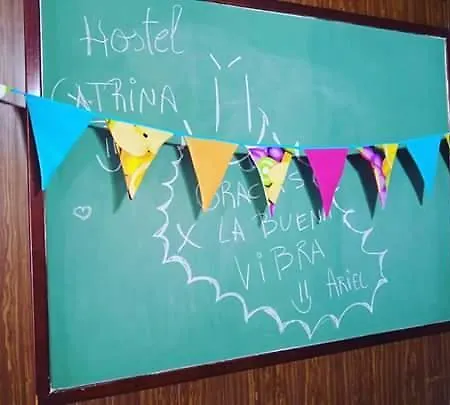 Hostel
CATRINA
GRACIAS
X LA BUENA
VIBRA
ARIEL